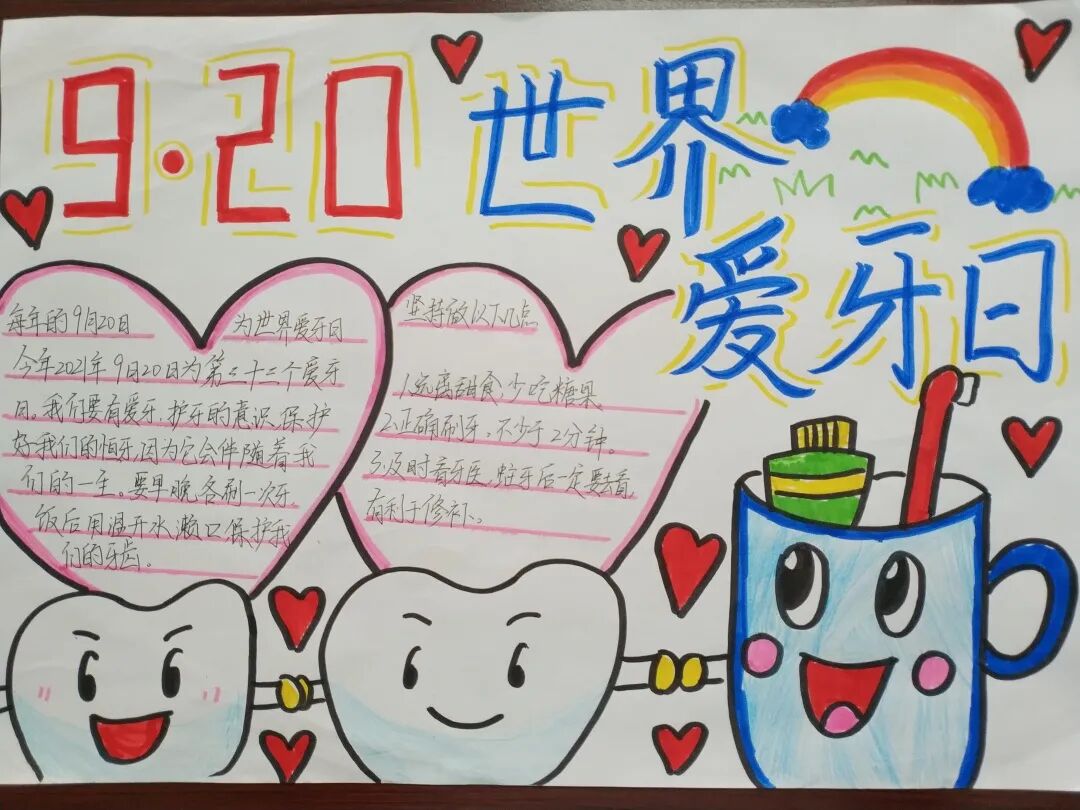 9·20 世界
爱牙日
每年的9月20日 为世界爱牙日
今年2021年9月20日为第三十三个爱牙
日。我们要有爱牙、护牙的意识、保护
好我们的恒牙,因为它会伴随着我
们的一生。要早晚各刷一次牙
饭后用温开水漱口保护我
们的牙齿。
坚持做以下几点
1.远离甜食,少吃糖果
2.正确刷牙,不少于2分钟。
3.及时看牙医,蛀牙后一定要去看,
有利于修补。